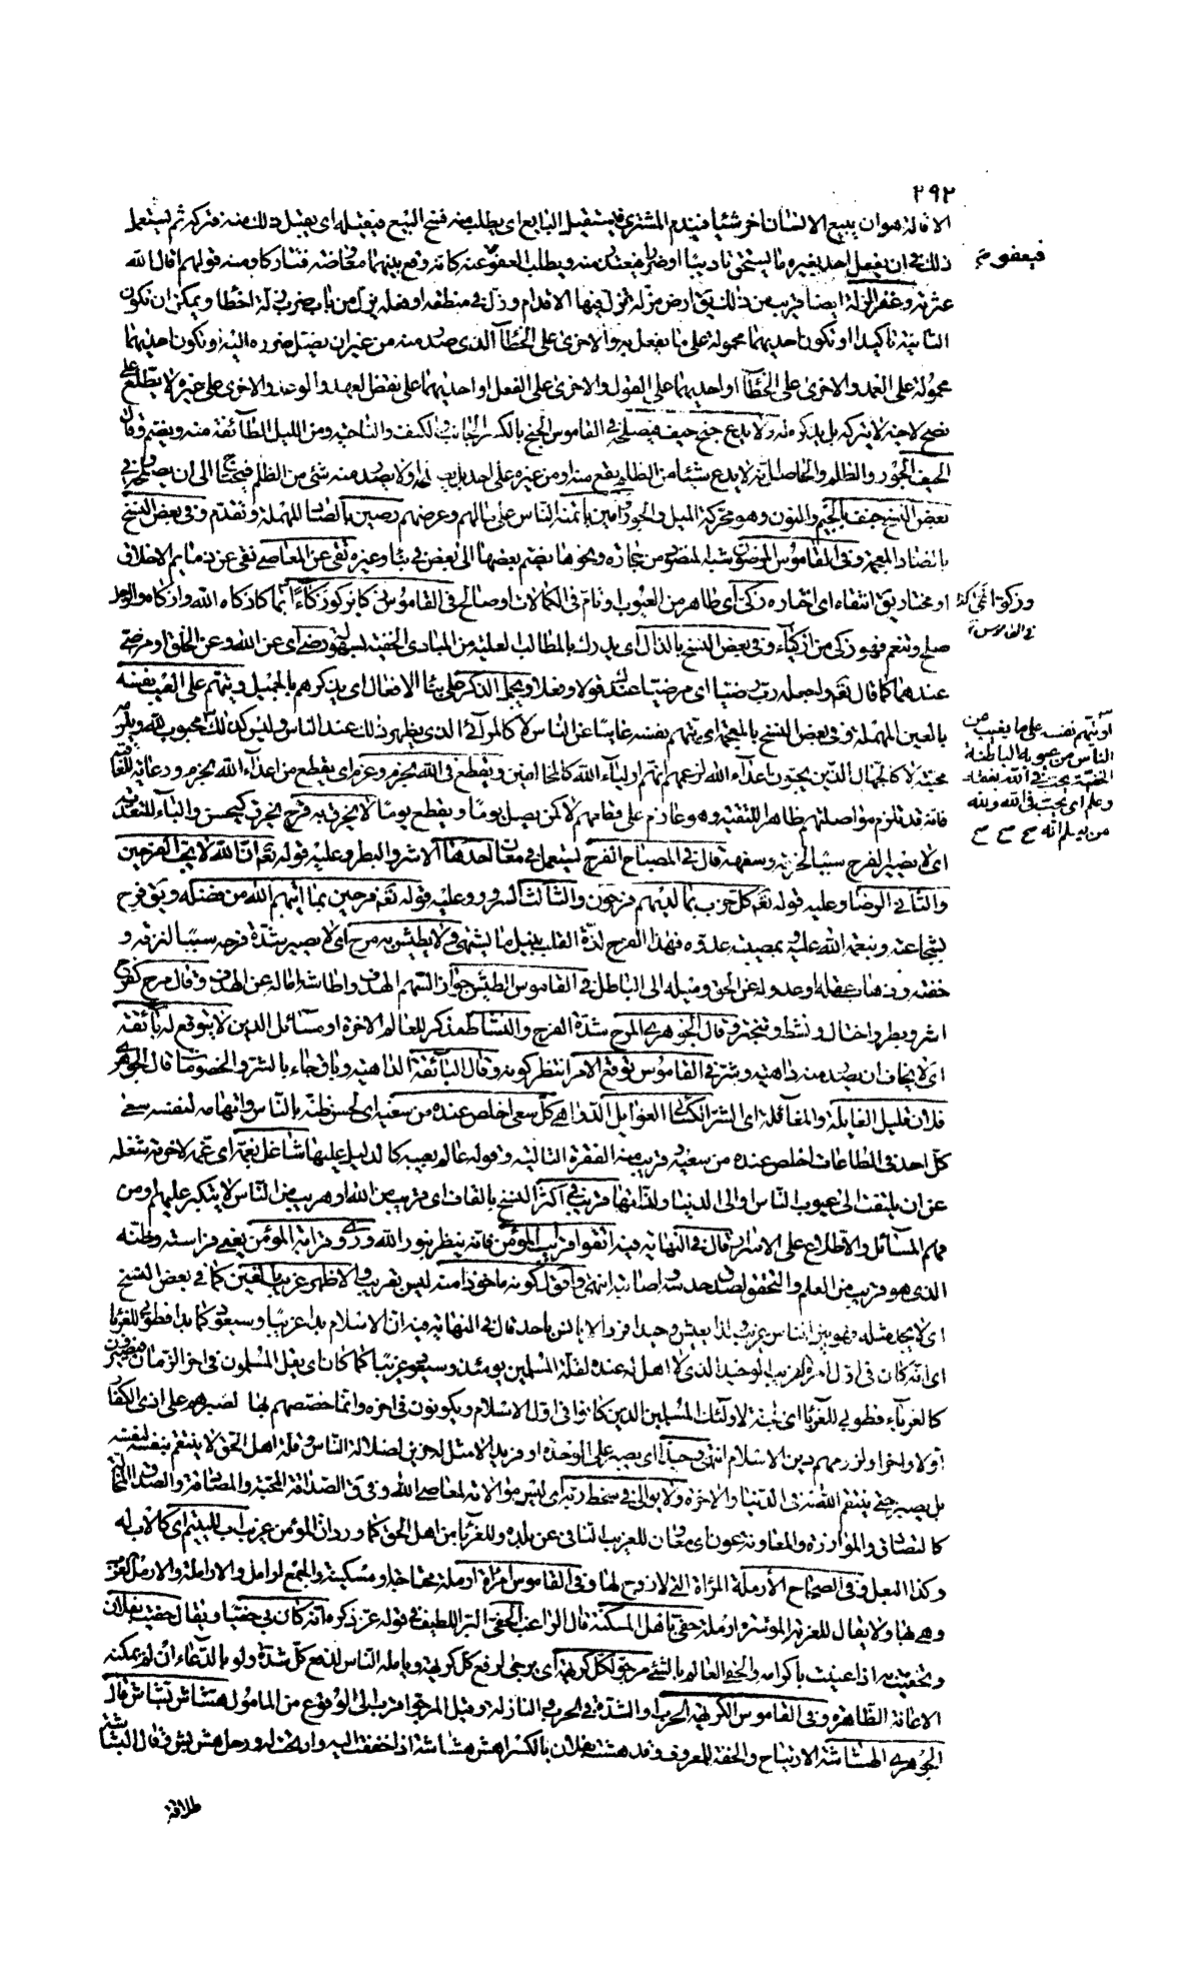 ٢٩٢
الاقالة هو ان يبيع الانسان اخر شيئا فيندم المشترى فيستقيل البايع اى يطلب منه فسخ البيع فيقيله اى يقبل ذلك منه فتركه ثم يستعمل
ذلك فى ان يفعل احد بغيره ما يستحق تاديبا او ضررا فيعتذر منه ويطلب العفو عنه كانه وقع بينهما معاوضة فتتاركا ومنه قولهم اقال الله
فيعفو
عثرته وغفر الزلة ايضا قريب من ذلك يق ارض مزلة تزل فيها الاقدام وزل فى منطقه او فعله يزل من باب ضرب زلة اخطأ ويمكن ان تكون
الثانية تاكيدا او تكون احديهما محمولة على ما يفعل به والاخرى على الخطأ الذى صدر منه من غير ان يصل ضرره اليه او تكون احديهما
محمولة على العمد والاخرى على الخطأ او احديهما على القول والاخرى على الفعل او احديهما على نقض العهد والوعد والاخرى على غيره لا يطلع على
نصح لاخيه لا يتركه بل يذكره له ولا يدع جنح حيف فيصلحه فى القاموس الجنح بالكسر الجانب والكنف والناحية ومن الليل الطائفة منه ويضم وقال
الحيف الجور والظلم والحاصل انه لا يدع شيئا من الظلم يقع منه او من غيره على احد بل يصلحه او لا يصدر منه شئ من الظلم فيحتاج الى ان يصلحه وفى
بعض النسخ جنف بالجيم والنون وهو محركة الميل والجور امين يأتمنه الناس على مالهم وعرضهم رصين بالصاد المهملة وتقدم وفى بعض النسخ
بالضاد المعجمة وفى القاموس المرضون شبه المنضود من حجارة ونحوها يضم بعضها الى بعض فى بناء وغيره تقى عن المعاصى نقى عن ذمائم الاخلاق
او مختار يق انتقاه اى اختاره زكى اى طاهر من العيوب او نام فى الكمالات او صالح فى القاموس زكا يزكو زكاء نما كازكاه الله وازكاه والرجل
وزكوة نمى كذا
فى القاموس
صلح وتنعم فهو زكى من ازكياء وفى بعض النسخ بالذال اى يدرك المطالب العلية من المبادى الخفية بسهولة رضى اى عن الله وعن الخلق او مرضى
عندهما كما قال تعم واجعله رب رضيا اى مرضيا عندك قولا وفعلا ويجمل الذكر على بناء الافعال اى يذكرهم بالجميل ويتهم على العيب نفسه
بالعين المهملة وفى بعض النسخ بالمعجمة اى يتهم نفسه غائبا عن الناس لا كالمرائى الذى يظهر ذلك عند الناس وليس كذلك
او يتهم نفسه على ما يغيب من
الناس من عيوبه الباطنة
الخفية يحب فى الله بفقه
وعلم اى يحب فى الله ولله
من يعلم انه
محبته لا كالجهال الذين يحبون اعداء الله لزعمهم انهم اولياء الله كالمخالفين ويقطع فى الله بحزم وعزم اى يقطع من اعداء الله بحزم ورعاية للعاقبة
فانه قد تلزم مواصلتهم ظاهرا للتقية وهو عازم على قطعهم لا كمن يصل يوما ويقطع يوما لا يخرق به فرح يخرق كيحسن والباء للتعدية
اى لا يصير الفرح سببا لخرقه وسفهه قال فى المصباح الفرح يستعمل فى معان احدها الاشر والبطر وعليه قوله تعم ان الله لا يحب الفرحين
والثانى الرضا وعليه قوله تعم كل حزب بما لديهم فرحون والثالث السرور وعليه قوله تعم فرحين بما اتيهم الله من فضله ويق فرح
بشجاعته وبنعمة الله عليه وبمصيبة عدوه فهذا الفرح لذة القلب بنيل ما يشتهى ولا يطيش به مرح اى لا يصير شدة فرحه سببا لنزقه و
خفته وذهاب عقله او عدوله عن الحق وميله الى الباطل فى القاموس الطيش جواز السهم الهدف واطاشه اماله عن الهدف وقال مرح كفرح
اشر وبطر واختال ونشط وتبختر وقال الجوهرى المرح شدة الفرح والنشاط مذكر للعالم الاخرة او مسائل الدين لا يتوقع له بائقة
اى لا يخاف ان يصدر منه داهية وشر فى القاموس توقع الامر انتظر كونه وقال البائقة الداهية وباق جاء بالشر والخصومات قال الجوهرى
فلان قليل الغايلة والمغالة اى الشر الكسائى الغوايل الدواهى كل سعى اخلص عنده من سعيه اى لحسن ظنه بالناس واتهامه لنفسه سعى
كل احد فى الطاعات اخلص عنده من سعيه وقريب منه الفقرة التالية وقوله عالم بعيبه كالدليل عليها شاغل بغمه اى غمه لاخرته شغله
عن ان يلتفت الى عيوب الناس والى الدنيا ولذاتها قريب فى اكثر النسخ بالقاف اى قريب من الله او قريب من الناس لا يتكبر عليهم او من
فهم المسائل والاطلاع على الاسرار قال فى النهاية فيه اتقوا قراب المؤمن فانه ينظر بنور الله وروى وقرابة المؤمن يعنى فراسته وظنه
الذى هو قريب من العلم والتحقق لصدق حدسه واصابته انتهى واقول كونه ماخوذا منه ليس بقريب والاظهر غريب بالغين كما فى بعض النسخ
اى لا يجد مثله فهو بين الناس غريب ولذا يعيش وحيدا فردا لا يانس باحد قال فى النهاية فيه ان الاسلام بدا غريبا وسيعود كما بدا فطوبى للغرباء
اى انه كان فى اول امره كالغريب الوحيد الذى لا اهل له عنده لقلة المسلمين يومئذ وسيعود غريبا كما كان اى يقل المسلمون فى اخر الزمان فيصيرون
كالغرباء فطوبى للغرباء اى الجنة لاولئك المسلمين الذين كانوا فى اول الاسلام ويكونون فى اخره وانما خصهم بها لصبرهم على اذى الكفار
اولا واخرا ولزومهم دين الاسلام انتهى وحيد اى يصبر على الوحدة او فريد لا مثل له حزين لضلالة الناس وقلة اهل الحق لا ينتقم بنفسه لنفسه
بل يصبر حتى ينتقم الله له فى الدنيا والاخرة ولا يوالى فى سخط ربه اى ليس موالاته لمعاصى الله وفى ق الصداقة المحبة والمصادقة والصداق المخالة
كالتصادق والموازرة والمعاونة عون اى معاون للغريب النائى عن بلده وللغرباء من اهل الحق كما ورد ان المؤمن غريب اب لليتيم اى كالاب له
وكذا البعل وفى الصحاح الارملة المرأة التى لا زوج لها وفى القاموس امرأة ارملة محتاجة او مسكينة والجمع ارامل والاراملة والارمل العزب
وهى بهاء ولا يقال للعزبة الموسرة ارملة حفى باهل المسكنة قال الراغب الحفى البر اللطيف فى قوله عز ذكره انه كان بى حفيا ويقال حفيت بفلان
وتحفيت به اذا عنيت باكرامه والحفى العالم بالشئ مرجو لكل كريهة اى يرجى لرفع كل كريهة ويامله الناس لدفع كل شدة ولو بالدعاء ان لم يمكنه
الاعانة الظاهرة وفى القاموس الكريهة الحرب او الشدة فى الحرب والنازلة وقيل المرجو اقرب الى الوقوع من المامول هشاش بشاش قال
الجوهرى الهشاشة الارتياح والخفة للمعروف وقد هششت بفلان بالكسر اهش هشاشة اذا خففت اليه وارتحت له ورجل هش بش وقال البشاشة
طلاقة